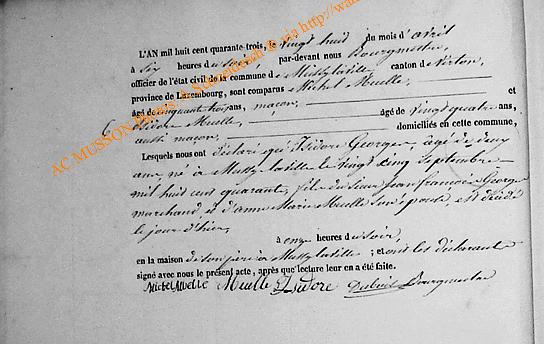 L'AN mil huit cent quarante-trois, le vingt huit du mois d'avril
à six heures du soir, par-devant nous Bourgmestre,
officier de l'état civil de la commune de Mussy la ville canton de Virton,
province de Luxembourg, sont comparus Michel Muelle,
âgé de cinquante trois ans, maçon, et
Isidore Muelle, âgé de vingt quatre ans,
aussi maçon, domiciliés en cette commune,
Lesquels nous ont déclaré que Isidore George, agé de deux
ans né à Mussy la ville le vingt cinq Septembre
mil huit cent quarante, fils du sieur jean françois George
marchand et d'anne Marie Muelle son épouse, est décédé
le jour d'hier,
à onze heures du soir,
en la maison de son père à Mussy la ville ; et ont les déclarants
signé avec nous le présent acte, après que lecture leur en a été faite.
Michel Muelle Muelle Isidore Bourgmestre
AC MUSSON
via http://